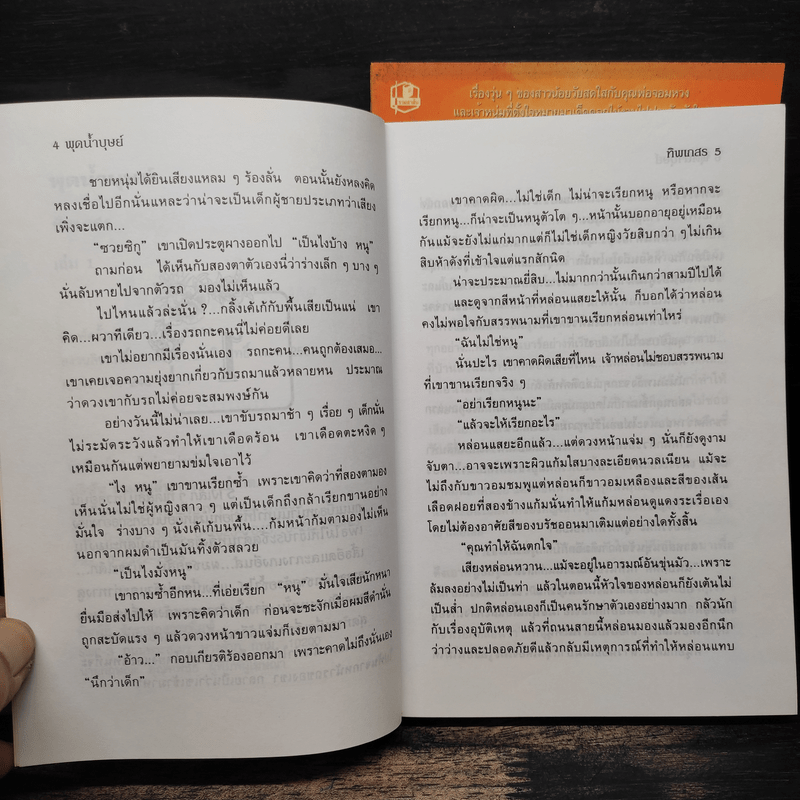 เรื่องวุ่น ๆ ของสาวน้อยวัยสดใสกับคุณพ่อจอมหวง
4 พุดน้ำบุษย์
ชายหนุ่มได้ยินเสียงแหลม ๆ ร้องลั่น ตอนนั้นยังหลงคิด
หลงเชื่อไปอีกนั่นแหละว่าน่าจะเป็นเด็กผู้ชายประเภทว่าเสียง
เพิ่งจะแตก...
“ซวยซิกู” เขาเปิดประตูผางออกไป “เป็นไงบ้าง หนู”
ถามก่อน ได้เห็นกับสองตาตัวเองนี่ว่าร่างเล็ก ๆ บาง ๆ
นั่นลับหายไปจากตัวรถ มองไม่เห็นแล้ว
ไปไหนแล้วล่ะนั่น ?...กลิ้งเค้เก้กับพื้นเสียเป็นแน่ เขา
คิด...ผวาทีเดียว...เรื่องรถกะคนนี่ไม่ค่อยดีเลย
เขาไม่อยากมีเรื่องนั่นเอง รถกะคน...คนถูกต้องเสมอ...
เขาเคยเจอความยุ่งยากเกี่ยวกับรถมาแล้วหลายหน ประมาณ
ว่าดวงเขากับรถไม่ค่อยจะสมพงษ์กัน
อย่างวันนี้ไม่น่าเลย...เขาขับรถมาช้า ๆ เรื่อย ๆ เด็กนั่น
ไม่ระมัดระวังแล้วทำให้เขาเดือดร้อน เขาเดือดตะหงิด ๆ
เหมือนกันแต่พยายามข่มใจเอาไว้
“ไง หนู” เขาขานเรียกซ้ำ เพราะเขาคิดว่าที่สองตามอง
เห็นนั่นไม่ใช่ผู้หญิงสาว ๆ แต่เป็นเด็กถึงกล้าเรียกขานอย่าง
มั่นใจ ร่างบาง ๆ นั่งเค้เก้บนพื้น....ก้มหน้าก้มตามองไม่เห็น
นอกจากผมดำเป็นมันทิ้งตัวสลวย
“เป็นไงมั่งหนู”
เขาถามซ้ำอีกหน...ที่เอ่ยเรียก “หนู” มั่นใจเสียนักหนา
ยื่นมือส่งไปให้ เพราะคิดว่าเด็ก ก่อนจะชะงักเมื่อผมสีดำนั่น
ถูกสะบัดแรง ๆ แล้วดวงหน้าขาวแจ่มก็เงยตามมา
“อ้าว...” กอบเกียรติร้องออกมา เพราะคาดไม่ถึงนั่นเอง
“นึกว่าเด็ก”
ทิพเกสร 5
เขาคาดผิด...ไม่ใช่เด็ก ไม่น่าจะเรียกหนู หรือหากจะ
เรียกหนู...ก็น่าจะเป็นหนูตัวโต ๆ...หน้านั้นบอกอายุอยู่เหมือน
กันแม้จะยังไม่แก่มากแต่ก็ไม่ใช่เด็กหญิงวัยสิบกว่า ๆไม่เกิน
สิบห้าดังที่เข้าใจแต่แรกสักนิด
น่าจะประมาณยี่สิบ...ไม่มากกว่านั้นเกินกว่าสามปีไปได้
และดูจากสีหน้าที่หล่อนแสยะให้นั้น ก็บอกได้ว่าหล่อน
คงไม่พอใจกับสรรพนามที่เขาขานเรียกหล่อนเท่าไหร่
“ฉันไม่ใช่หนู”
นั่นปะไร เขาคาดผิดเสียที่ไหน เจ้าหล่อนไม่ชอบสรรพนาม
ที่เขาขานเรียกจริง ๆ
“อย่าเรียกหนูนะ”
“แล้วจะให้เรียกอะไร”
หล่อนแสยะอีกแล้ว...แต่ดวงหน้าแจ่ม ๆ นั่นก็ยังดูงาม
จับตา...อาจจะเพราะผิวแก้มใสบางละเอียดนวลเนียน แม้จะ
ไม่ถึงกับขาวอมชมพูแต่หล่อนก็ขาวอมเหลืองและสีของเส้น
เลือดฝอยที่สองข้างแก้มนั่นทำให้แก้มหล่อนดูแดงระเรื่อเอง
โดยไม่ต้องอาศัยสีของบรัชออนมาเติมแต่อย่างใดทั้งสิ้น
“คุณทำให้ฉันตกใจ”
เสียงหล่อนหวาน...แม้จะอยู่ในอารมณ์อันขุ่นมัว...เพราะ
ล้มลงอย่างไม่เป็นท่า แล้วในตอนนี้หัวใจของหล่อนก็ยังเต้นไม่
เป็นส่ำ ปกติหล่อนเองก็เป็นคนรักษาตัวเองอย่างมาก กลัวนัก
กับเรื่องอุบัติเหตุ แล้วที่ถนนสายนี้หล่อนมองแล้วมองอีกนึก
ว่าว่างและปลอดภัยดีแล้วกลับมีเหตุการณ์ที่ทำให้หล่อนแทบ